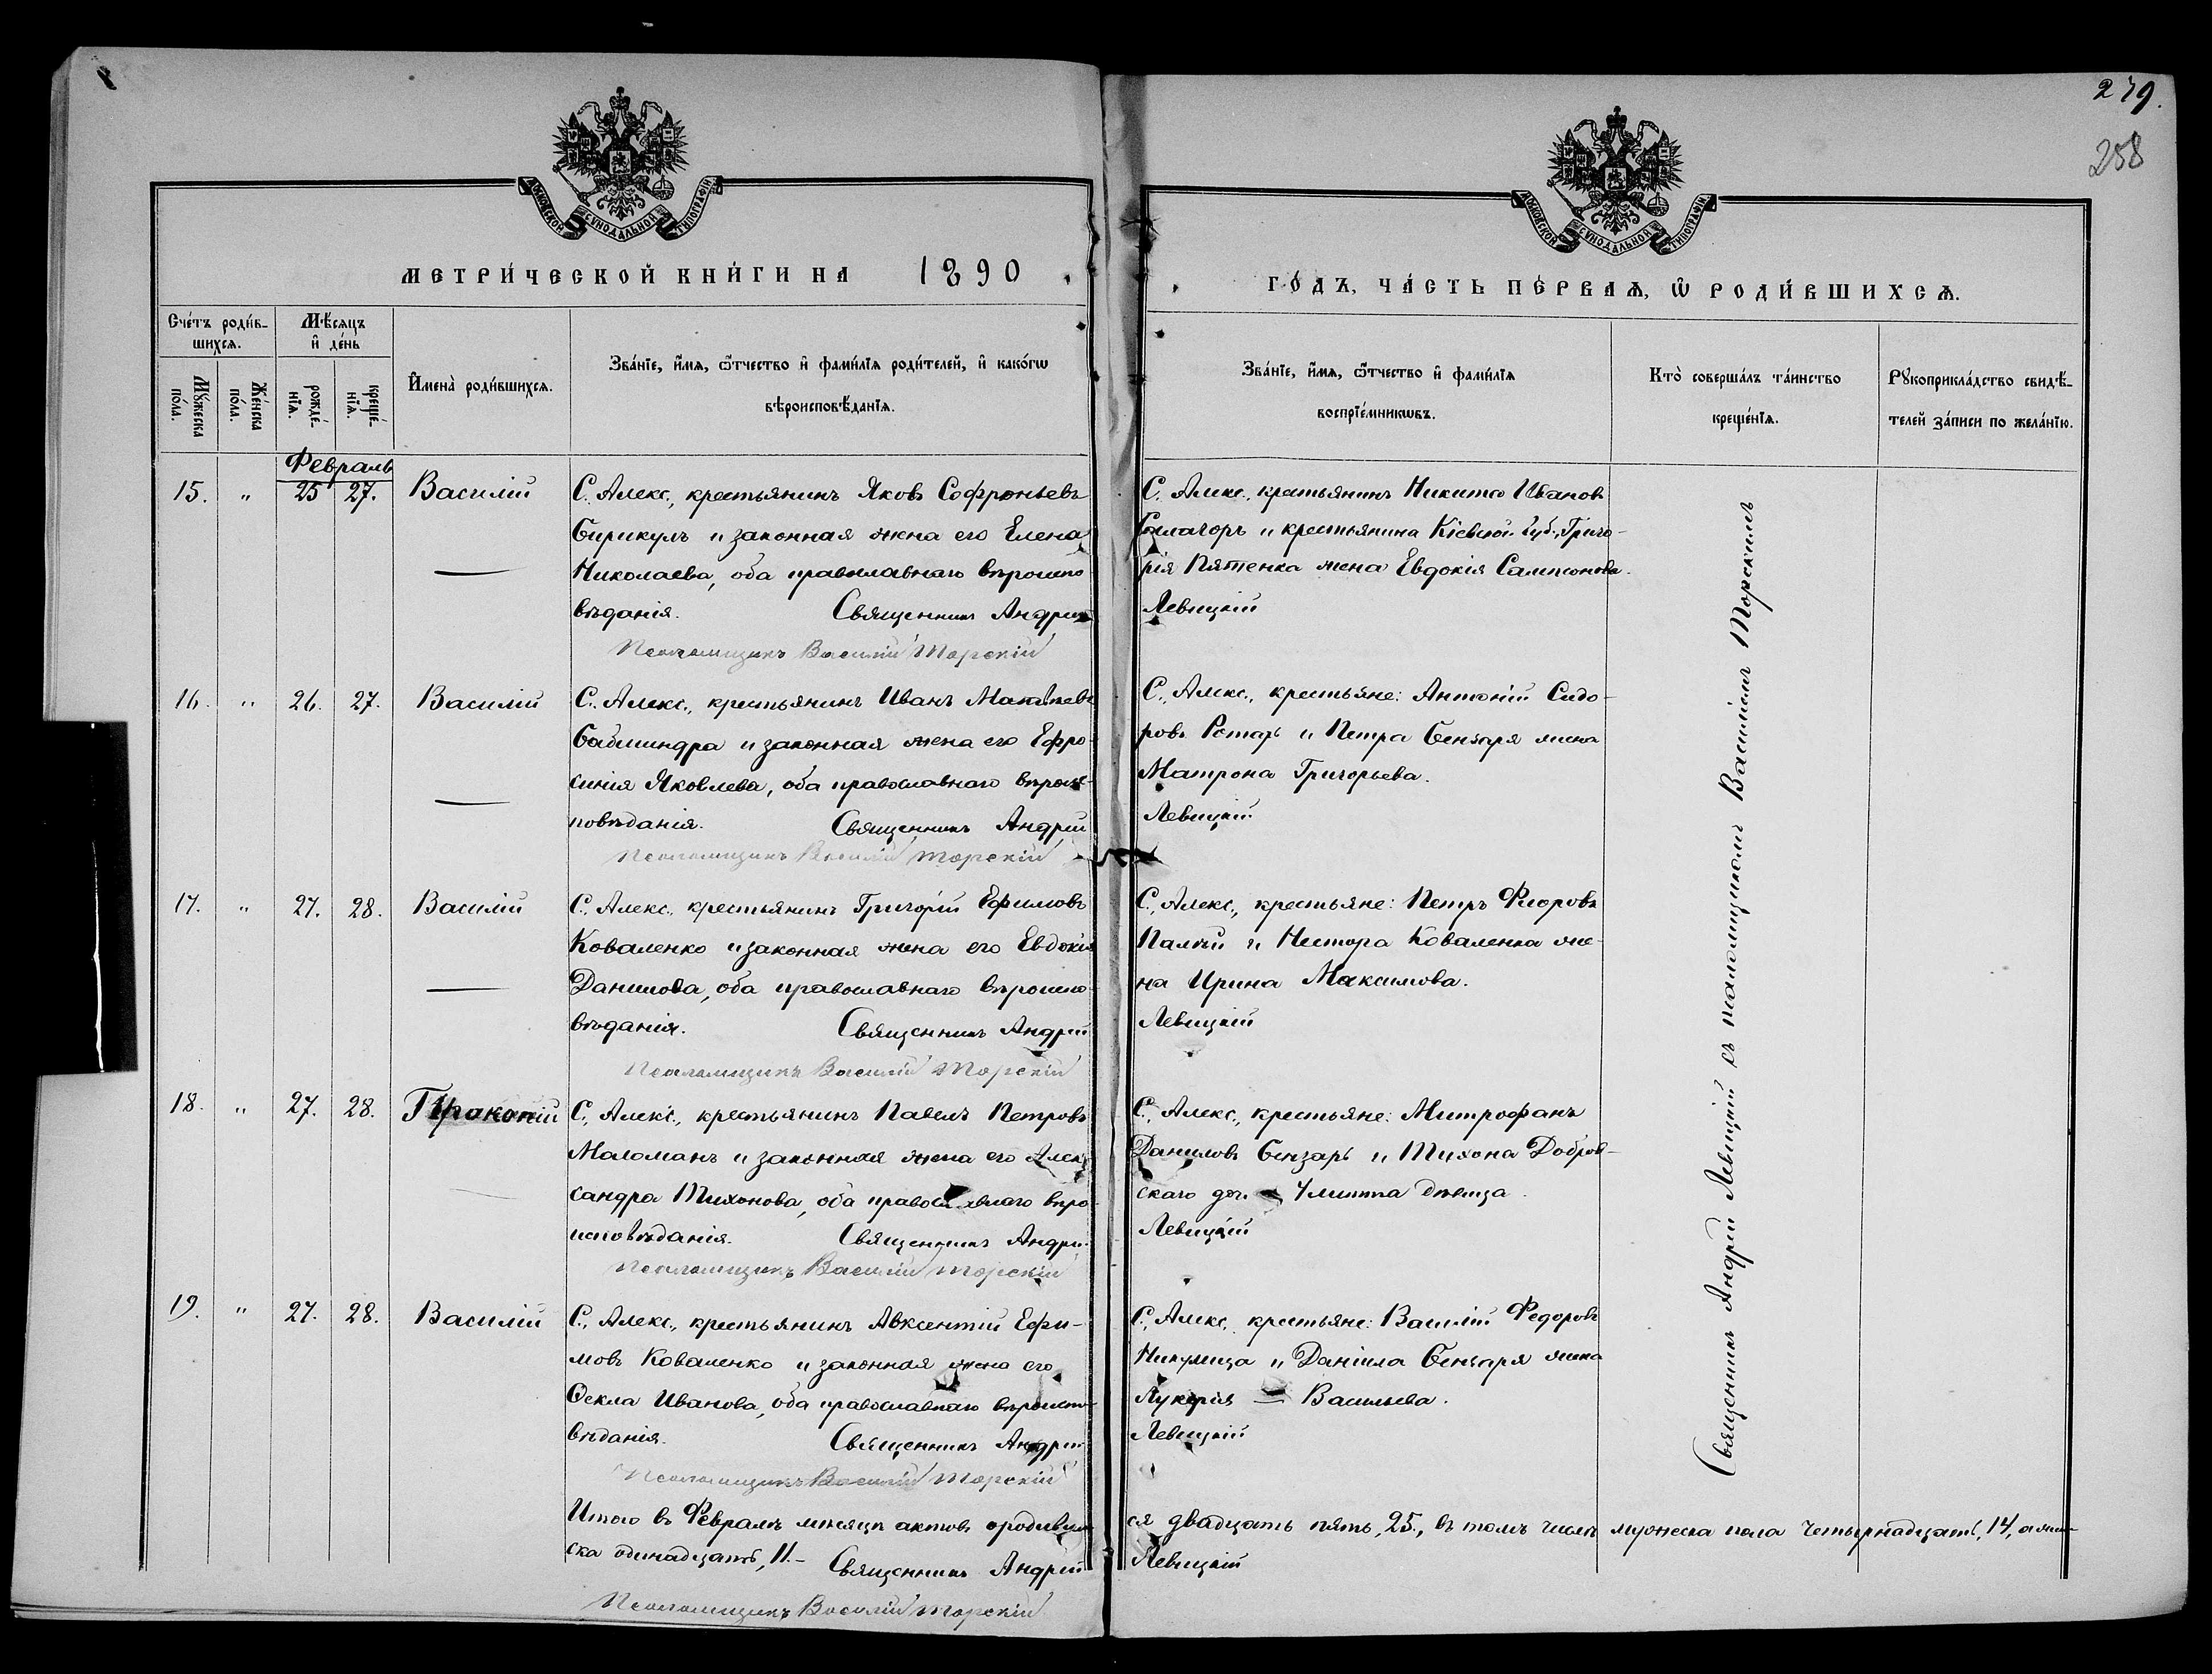 279.
258
МОСКОВСКОЙ СѴНОДАЛЬНОЙ ТИПОГРАФІИ
МОСКОВСКОЙ СѴНОДАЛЬНОЙ ТИПОГРАФІИ
МЕТРИ́ЧЕСКОЙ КНИ́ГИ НА 1890
ГО́ДЪ, ЧА́СТЬ ПЕ́РВАѦ, Ѡ҆ РОДИ́ВШИХСѦ.
Сче́тъ роди́в-
шихсѧ.
Мꙋ́жеска
по́ла.
Же́нска
по́ла.
Мѣ́сѧцъ
и҆ де́нь
рожде́-
нїѧ.
креще́-
нїѧ.
И҆мена̀ роди́вшихсѧ.
Зва́нїе, и҆́мѧ, ѻ҆́тчество и҆ фами́лїѧ роди́телей, и҆ како́гѡ
вѣроисповѣ́данїѧ.
Зва́нїе, и҆́мѧ, ѻ҆́тчество и҆ фами́лїѧ
воспрїе́мникѡвъ.
Кто̀ соверша́лъ та́инство
креще́нїѧ.
Рꙋкоприкла́дство свидѣ́-
телей за́писи по жела́нїю.
Февраль
15. " 25 27. Василій
С. Алекс., крестьянинъ Яковъ Софроньевъ
Бирикулъ и законная жена его Елена
Николаева, оба православнаго вѣроиспо
вѣданія. Священникъ Андрій
Псаломщикъ Василій Торскій
С. Алекс., крестьянинъ Никита Ивановъ
и крестьянина Кіевской губ., Григо-
рія Пятенка жена Евдокія Сампсонова.
Левицкій
16. " 26. 27. Василій
С. Алекс., крестьянинъ Иванъ Матвѣевъ
и законная жена его Ефро-
синія Яковлева, оба православнаго вѣроис-
повѣданія. Священникъ Андрій
Псаломщикъ Василій Торскій
С., Алекс., крестьяне: Антоній Сидо-
ровъ Ротарь и Петра Бензаря жена
Матрона Григорьева.
Левицкій
17. " 27. 28. Василій
С., Алекс., крестьянинъ Григорій Ефимовъ
Коваленко и законная жена его Евдокія
Данилова, оба православнаго вѣроиспо
вѣданія. Священникъ Андрій
Псаломщикъ Василій Торскій
С., Алекс., крестьяне: Петръ Феоровъ
Палій и Нестора Коваленка же-
на Ирина Максимова.
Левицкій
18. " 27. 28. Прокопій
С., Алекс., крестьянинъ Павелъ Петровъ
Маломанъ и законная жена его Алек-
сандра Тихонова, оба православнаго вѣро-
исповѣданія. Священникъ Андрій
Псаломщикъ Василій Торскій
С., Алекс., крестьяне: Митрофанъ
Даниловъ Бензарь и Тихона Добров-
скаго доч. Улитта дѣвица.
Левицкій
19. " 27. 28. Василій
С., Алекс., крестьянинъ Авксентій Ефи-
мовъ Коваленко и законная жена его
Ѳекла Иванова, оба православнаго вѣроиспо-
вѣданія. Священникъ Андрій
Псаломщикъ Василій Торскій
С., Алекс., крестьяне: Василій Федоровъ
Никулица и Даніила Бензаря жена
Лукерія — Васильева.
Левицкій
Священникъ Андрій Левицкій съ псаломщикомъ Василіемъ Торскимъ
Итого въ Февралѣ мѣсяцѣ актовъ о родивших
ся двадцать пять, 25., въ томъ числѣ мужеска пола четырнадцать, 14, а жен-
ска одинадцать, 11.– Священникъ Андрій
Левицкій
Псаломщикъ Василій Торскій